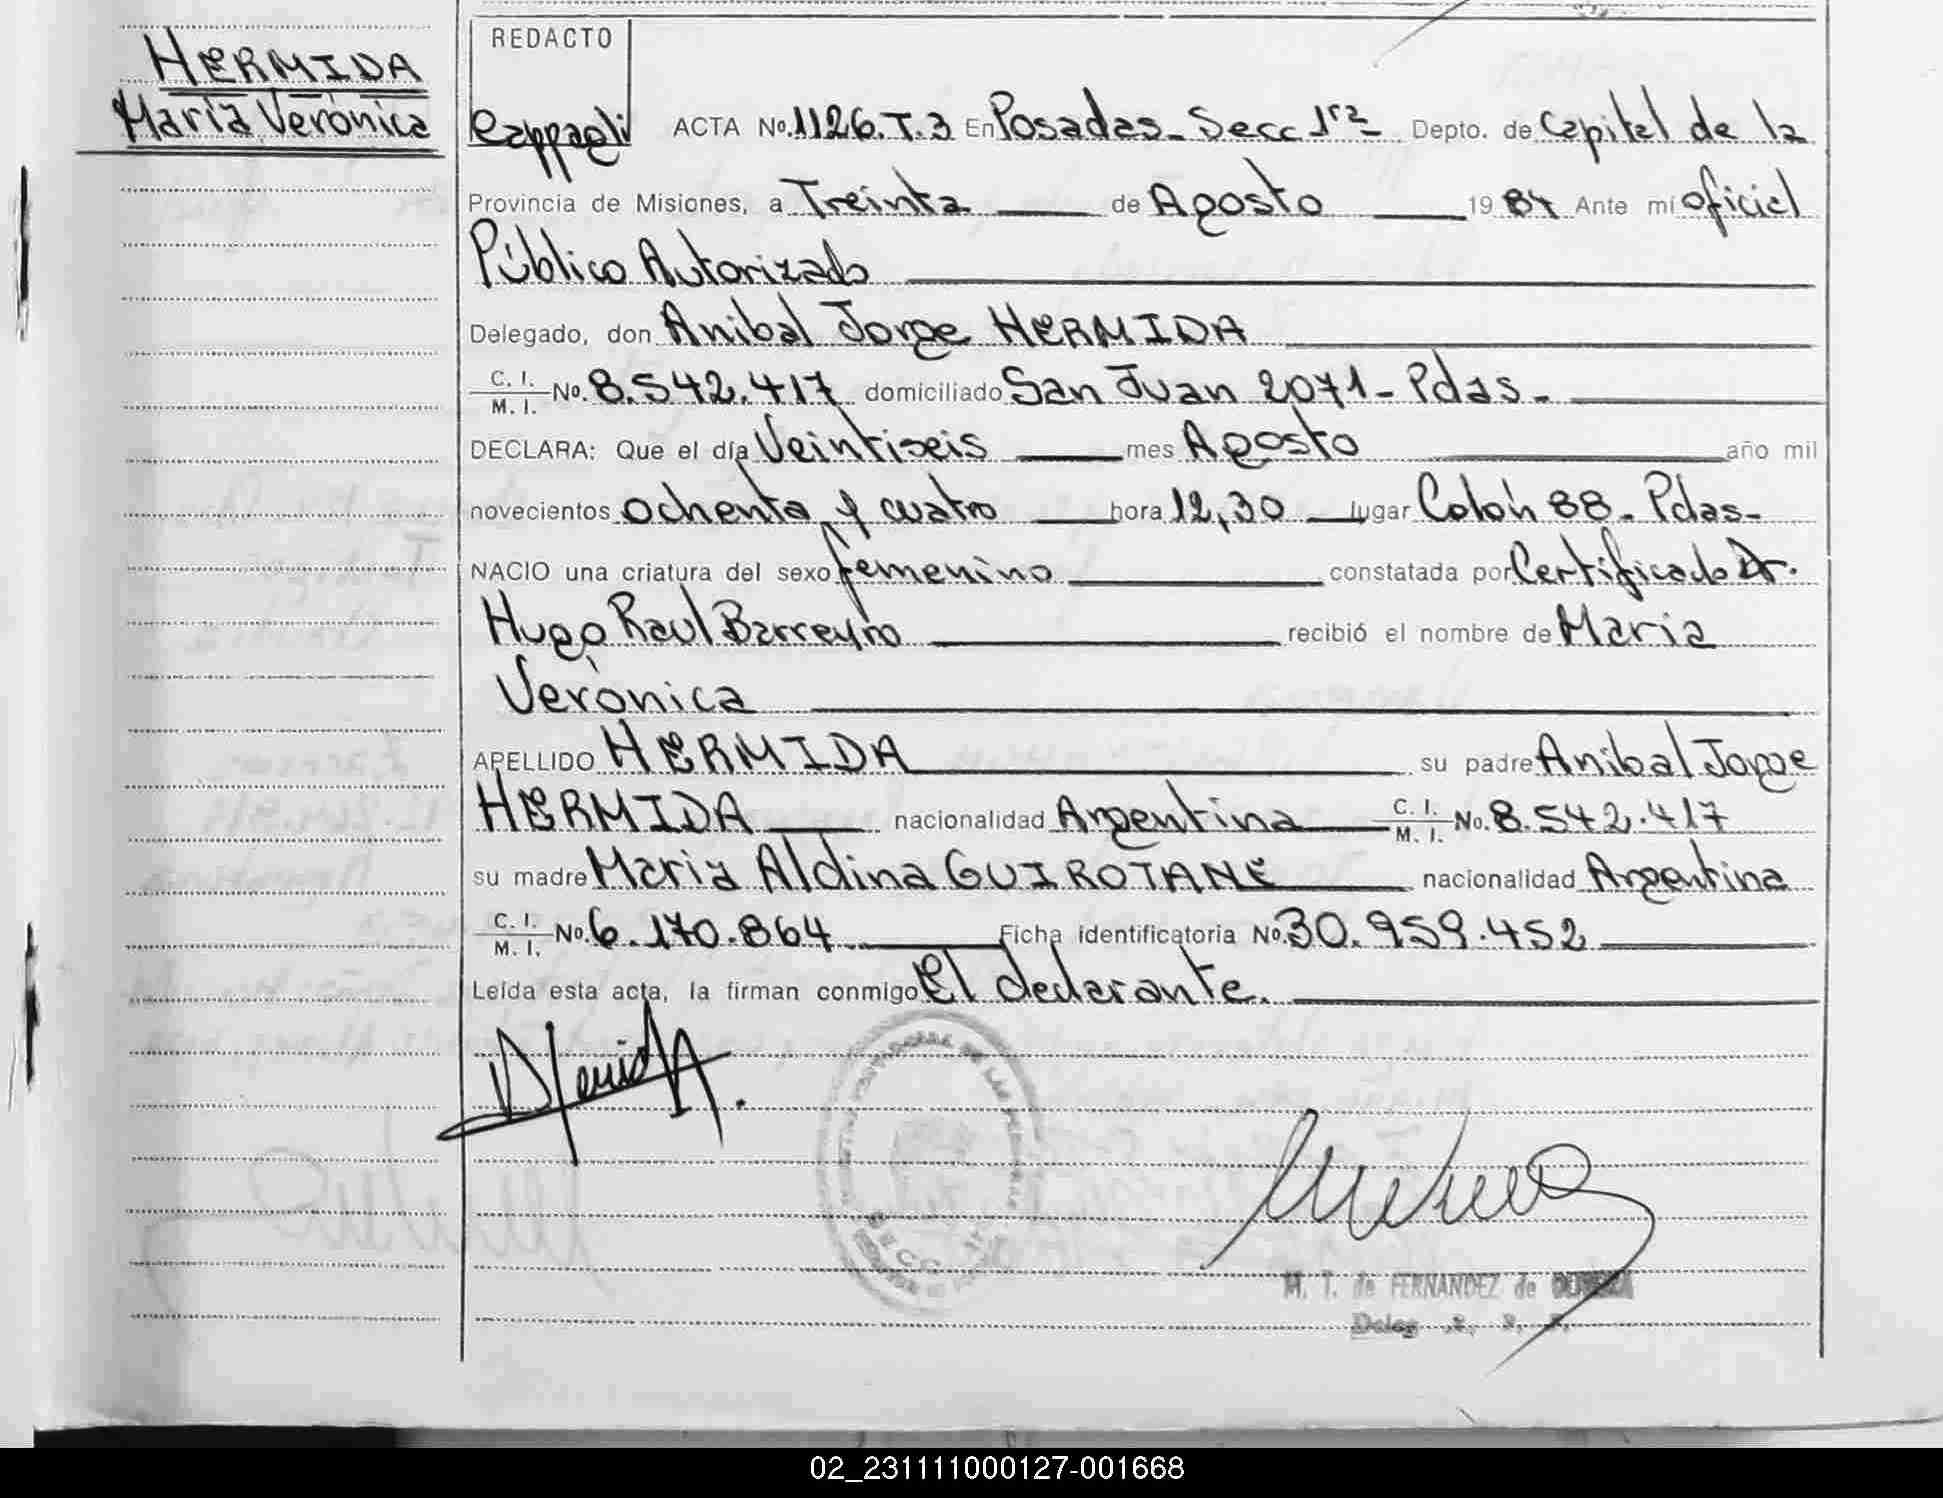 HERMIDA
María Verónica
REDACTO
Cappagli
ACTA No. 1126. T. 3 En Posadas - Secc 1ra - Depto. de Capital de la
Provincia de Misiones, a Treinta de Agosto 19 84 Ante mí oficial
Público Autorizado
Delegado, don Anibal Jorge HERMIDA
C. I. / M. I. No. 8.542.417 domiciliado San Juan 2071 - Pdas -
DECLARA: Que el día Veintiseis mes Agosto año mil
novecientos ochenta y cuatro hora 12,30 lugar Colón 88 - Pdas -
NACIO una criatura del sexo femenino constatada por Certificado Dr.
Hugo Raul Barreyro recibió el nombre de Maria
Verónica
APELLIDO HERMIDA su padre Anibal Jorge
HERMIDA nacionalidad Argentina C. I. / M. I. No. 8.542.417
su madre Maria Aldina GUIROTANE nacionalidad Argentina
C. I. / M. I. No. 6.170.864 Ficha identificatoria No. 30.959.452
Leída esta acta, la firman conmigo El declarante.
M. T. de FERNANDEZ de
Deleg
02_231111000127-001668